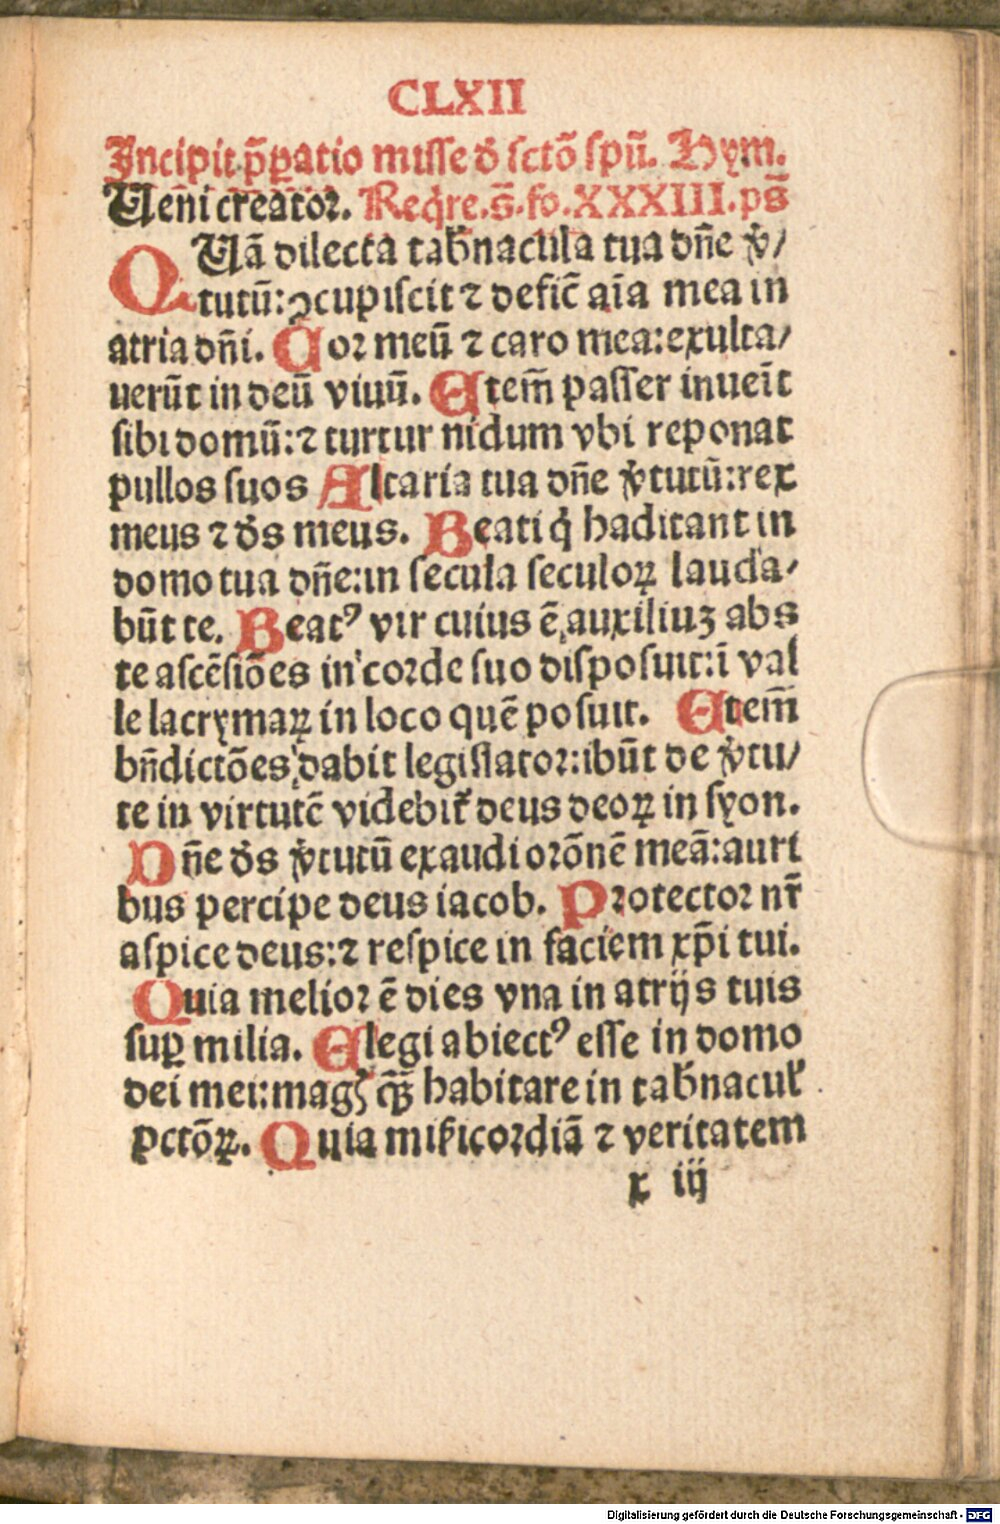 CLXII
Incipit p̄ꝑatio misse d̓ sctō spū. Hym.
Ueni creator. Reqͥre.s̄.fo.XXXIII.ps̄
QUā dilecta tab̓nacula tua dn̄e v̓/
tutū:ꝯcupiscit ⁊ defic̄ aīa mea in
atria dn̄i. Cor meū ⁊ caro mea:exulta/
uerūt in deū viuū. Etem̄ passer inueīt
sibi domū:⁊ turtur nidum vbi reponat
pullos suos Altaria tua dn̄e v̓tutū:rex
meus ⁊ d̓s meus. Beati qͥ haditant in
domo tua dn̄e:in secula seculoꝝ lauda/
būt te. Beatꝰ vir cuius ē auxiliuꝫ abs
te ascēsiōes in corde suo disposuit:ī val
le lacrymaꝝ in loco quē posuit. Etem̄
bn̄dictōes dabit legislator:ibūt de v̓tu/
te in virtutē videbit̓ deus deoꝝ in syon.
Dn̄e d̓s v̓tutū exaudi orōnē meā:auri
bus percipe deus iacob. Protector nr̄
aspice deus:⁊ respice in faciem xp̄i tui.
Quia melior ē dies vna in atrijs tuis
suꝑ milia. Elegi abiectꝰ esse in domo
dei mei:magꝭ qͣꝫ habitare in tab̓nacul̓
pctōꝝ. Quia mi̓icordiā ⁊ veritatem
x iij
Digitalisierung gefördert durch die Deutsche Forschungsgemeinschaft - DFG